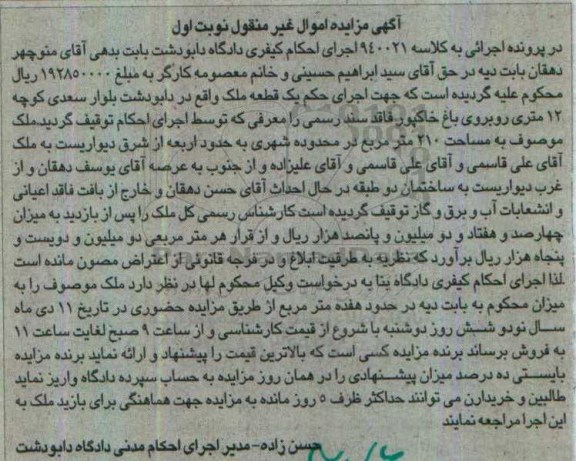 آگهی مزایده اموال غیر منقول نوبت اول
در پرونده اجرائی به کلاسه ۹۴۰۰۲۱ اجرای احکام کیفری دادگاه دابودشت بابت بدهی آقای منوچهر
دهقان بابت دیه در حق آقای سید ابراهیم حسینی و خانم معصومه کارگر به مبلغ ۱۹۲۸۵۰۰۰۰ ریال
محکوم علیه گردیده است که جهت اجرای حکم یک قطعه ملک واقع در دابودشت بلوار سعدی کوچه
۱۲ متری روبروی باغ خاکپور فاقد سند رسمی را معرفی که توسط اجرای احکام توقیف گردید.ملک
موصوف به مساحت ۲۱۰ متر مربع در محدوده شهری به حدود اربعه از شرق دیواریست به ملک
آقای علی قاسمی و آقای علی قاسمی و آقای علیزاده و از جنوب به عرصه آقای یوسف دهقان و از
غرب دیواریست به ساختمان دو طبقه در حال احداث آقای حسن دهقان و خارج از بافت فاقد اعیانی
و انشعابات آب و برق و گاز توقیف گردیده است کارشناس رسمی کل ملک را پس از بازدید به میزان
چهارصد و هفتاد و دو میلیون و پانصد هزار ریال و از قرار هر متر مربعی دو میلیون و دویست و
پنجاه هزار ریال برآورد که نظریه به طرفیت ابلاغ و در فرجه قانونی از اعتراض مصون مانده است
لذا اجرای احکام کیفری دادگاه بنا به درخواست وکیل محکوم لها در نظر دارد ملک موصوف را به
میزان محکوم به بابت دیه در حدود هفده متر مربع از طریق مزایده حضوری در تاریخ ۱۱ دی ماه
سال نودو شش روز دوشنبه با شروع از قیمت کارشناسی و از ساعت ۹ صبح لغایت ساعت ۱۱
به فروش برساند برنده مزایده کسی است که بالاترین قیمت را پیشنهاد و ارائه نماید برنده مزایده
بایستی ده درصد میزان پیشنهادی را در همان روز مزایده به حساب سپرده دادگاه واریز نماید
طالبین و خریدارن می توانند حداکثر ظرف ۵ روز مانده به مزایده جهت هماهنگی برای بازید ملک به
این اجرا مراجعه نمایند
حسن زاده-مدیر اجرای احکام مدنی دادگاه دابودشت